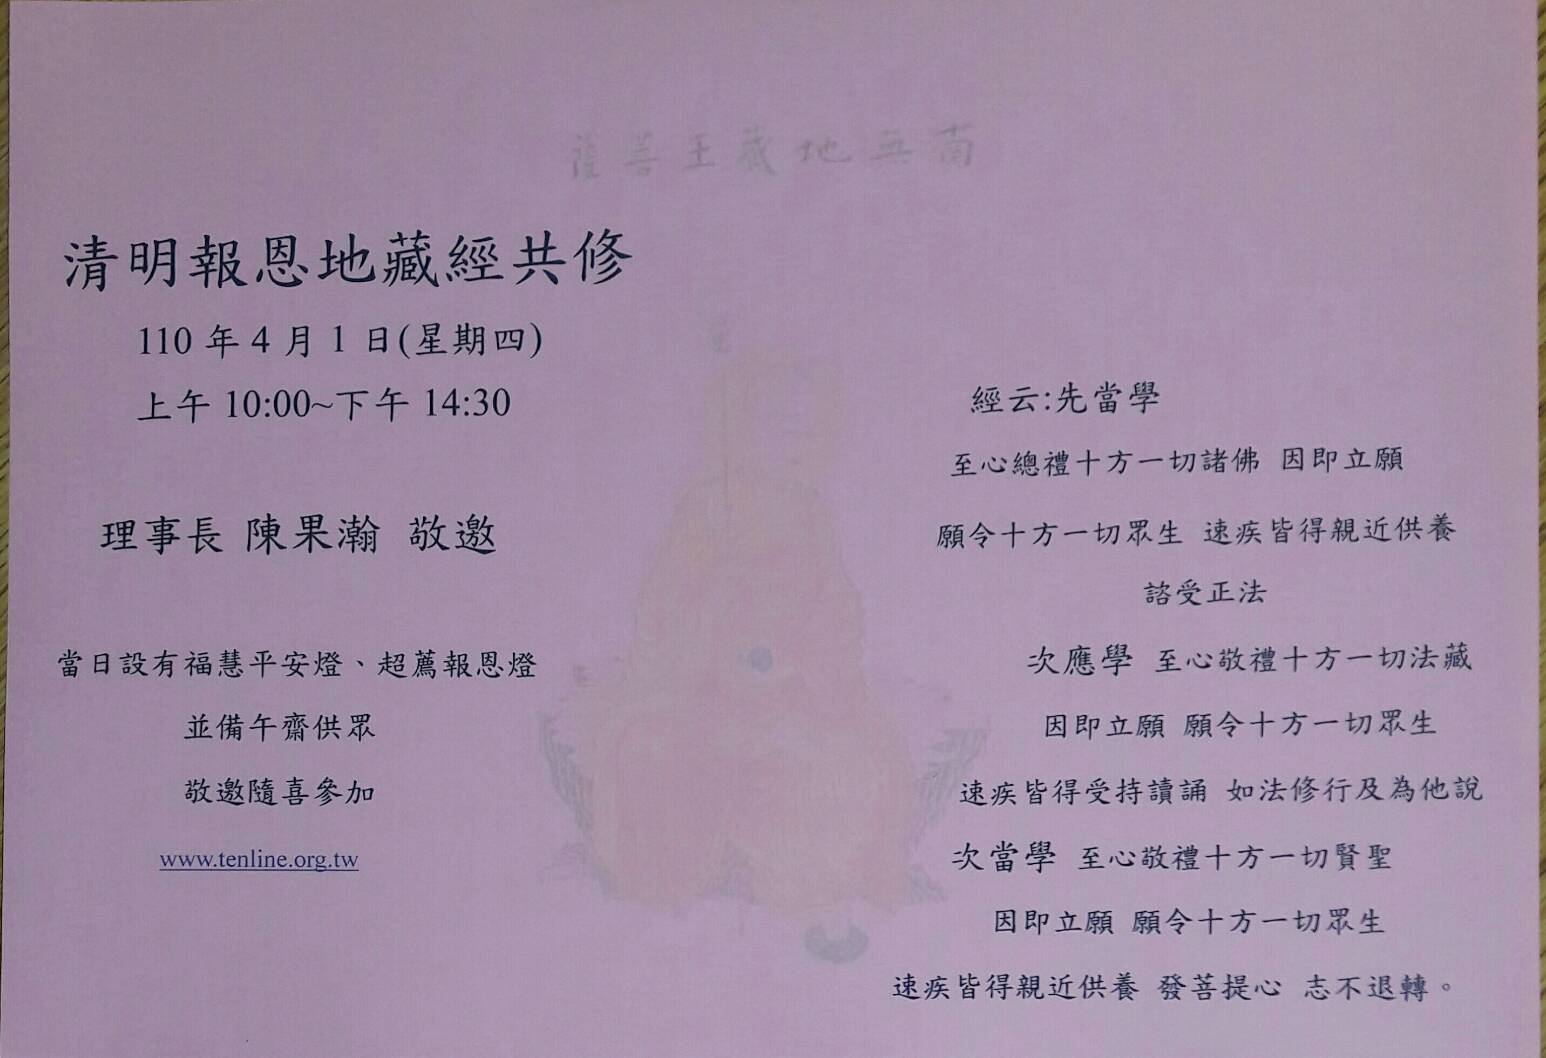 南無地藏王菩薩
清明報恩地藏經共修
110 年 4 月 1 日(星期四)
上午 10:00~下午 14:30
理事長 陳果瀚 敬邀
當日設有福慧平安燈、超薦報恩燈
並備午齋供眾
敬邀隨喜參加
www.tenline.org.tw
經云:先當學
至心總禮十方一切諸佛 因即立願
願令十方一切眾生 速疾皆得親近供養
諮受正法
次應學 至心敬禮十方一切法藏
因即立願 願令十方一切眾生
速疾皆得受持讀誦 如法修行及為他說
次當學 至心敬禮十方一切賢聖
因即立願 願令十方一切眾生
速疾皆得親近供養 發菩提心 志不退轉。